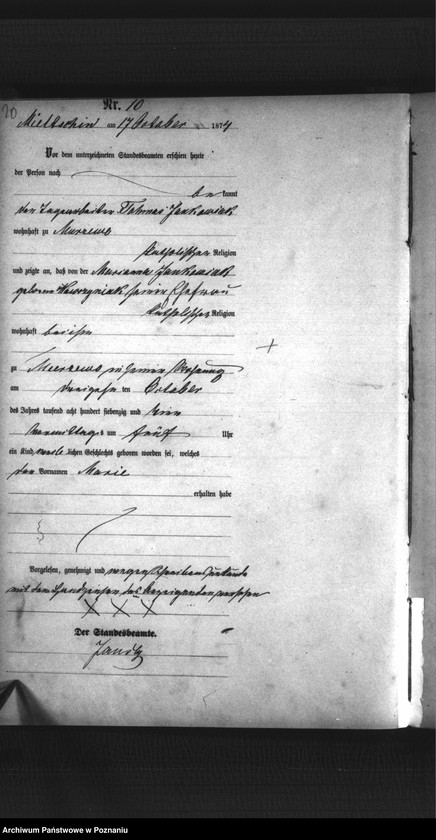 20
Nr. 10
Mieltschin am 17 October 1874
Vor dem unterzeichneten Standesbeamten erschien heute
der Person nach
be kannt
der Tagearbeiter Thomas Jankowiak
wohnhaft zu Murzewo
katholischer Religion
und zeigte an, daß von der Marianna Jankowiak
geborene seiner Ehefrau
katholischer Religion
wohnhaft bei ihm
zu in seiner Wohnung
am dreizehn ten October
des Jahres tausend acht hundert siebenzig und vier
Vormittags um fünf Uhr
ein Kind weib lichen Geschlechts geboren worden sei, welches
den Vornamen Marie
erhalten habe
Vorgelesen, genehmigt und wegen
mit den Handzeichen des Anzeigenden versehen
X X X
Der Standesbeamte.
Archiwum Państwowe w Poznaniu